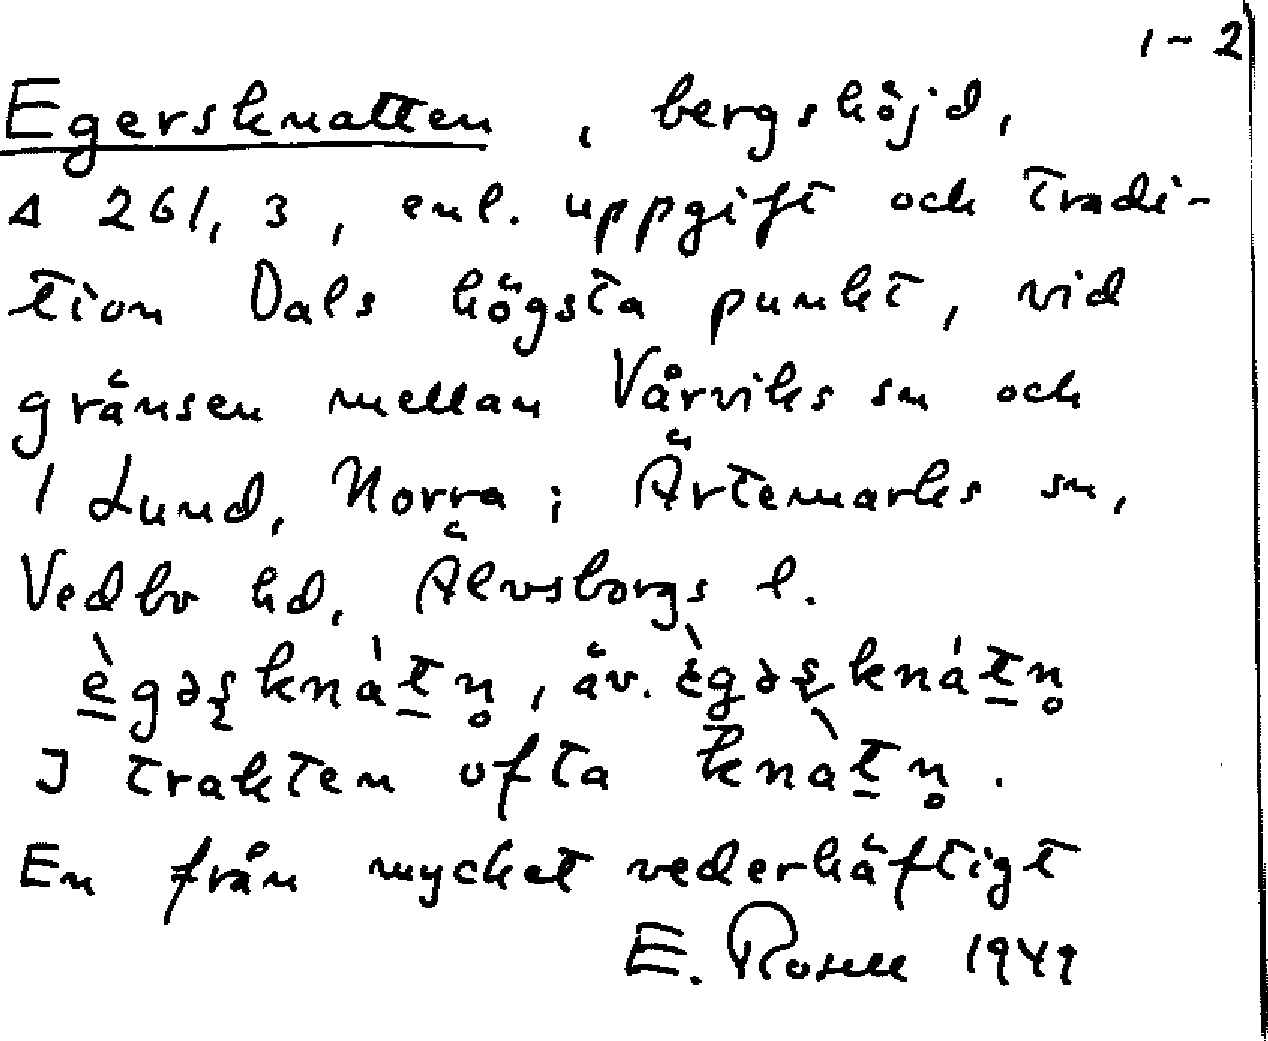 1-2
Egersknatten, bergshöjd,
Δ 261,3, enl. uppgift och tradi-
tion Dals högsta punkt, vid
gränsen mellan Vårviks sn och
1 Lund, Norra i Ärtemarks sn,
Vedbo hd, Älvsborgs l.
, äv.
I trakten ofta
En från mycket vederhäftigt
E. Rosell 1949